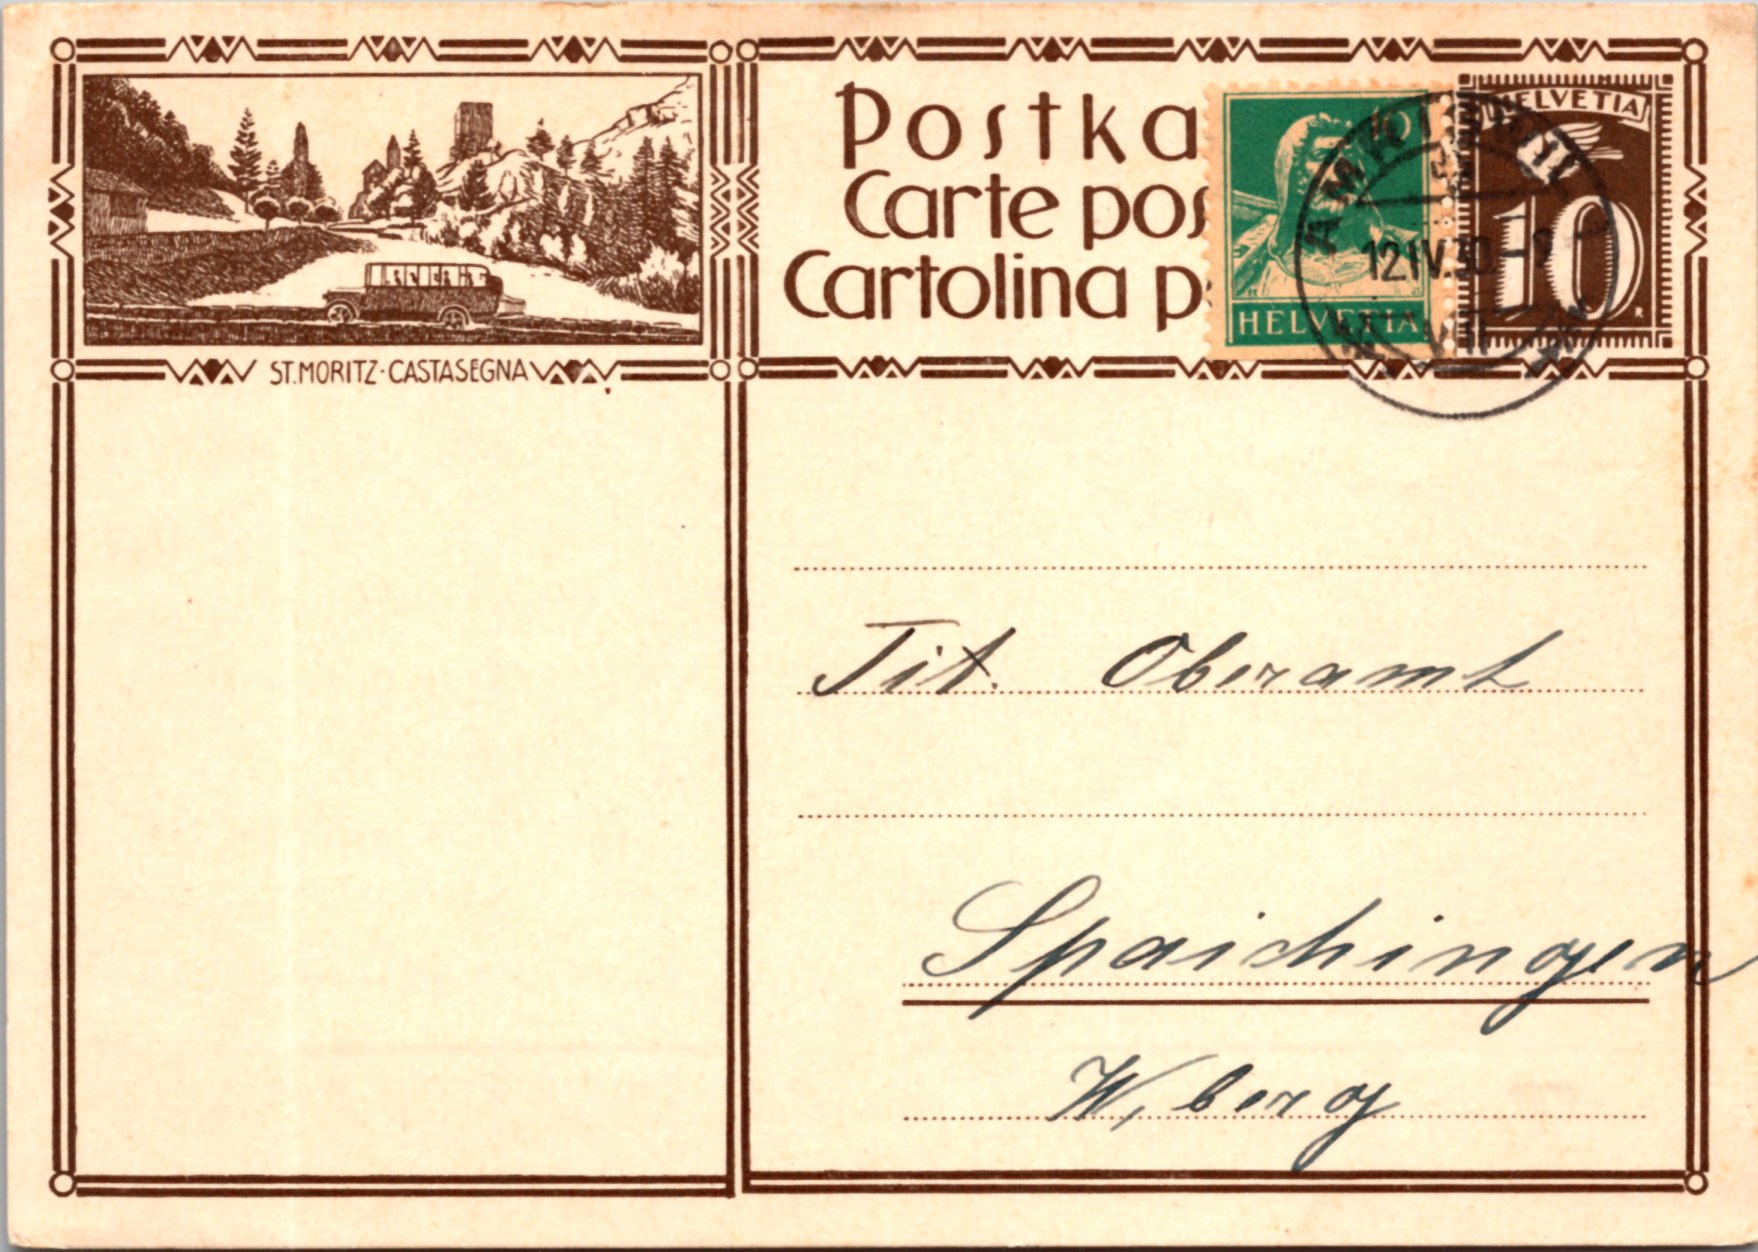 Postka
Carte pos
Cartolina p
10
HELVETIA
HELVETIA
10
12.IV.30
ST. MORITZ · CASTASEGNA
Tit. Oberamt
Spaichingen
W, berg